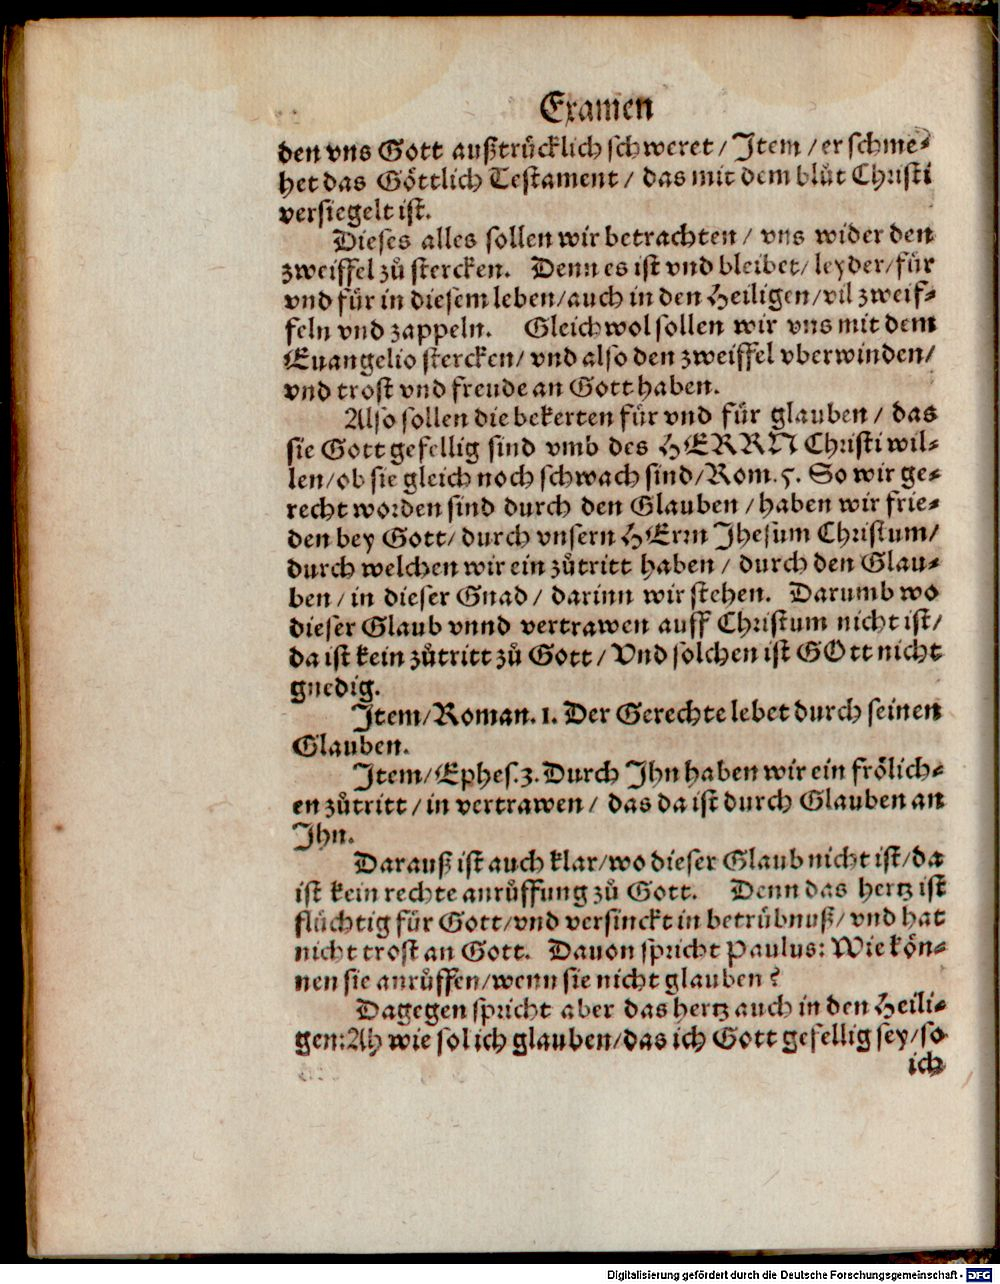 Examen
den vns Gott außtrücklich schweret / Item / er schme-
het das Göttlich Testament / das mit dem blůt Christi
versiegelt ist.
Dieses alles sollen wir betrachten / vns wider den
zweiffel zů stercken. Denn es ist vnd bleibet / leyder / für
vnd für in diesem leben / auch in den Heiligen / vil zweif-
feln vnd zappeln. Gleichwol sollen wir vns mit dem
Euangelio stercken / vnd also den zweiffel vberwinden /
vnd trost vnd freude an Gott haben.
Also sollen die bekerten für vnd für glauben / das
sie Gott gefellig sind vmb des HERRN Christi wil-
len / ob sie gleich noch schwach sind / Rom. 5. So wir ge-
recht worden sind durch den Glauben / haben wir frie-
den bey Gott / durch vnsern HErrn Jhesum Christum /
durch welchen wir ein zůtritt haben / durch den Glau-
ben / in dieser Gnad / darinn wir stehen. Darumb wo
dieser Glaub vnnd vertrawen auff Christum nicht ist /
da ist kein zůtritt zů Gott / Vnd solchen ist GOtt nicht
gnedig.
Item / Roman. 1. Der Gerechte lebet durch seinen
Glauben.
Item / Ephes. 3. Durch Ihn haben wir ein frölich-
en zůtritt / in vertrawen / das da ist durch Glauben an
Ihn.
Darauß ist auch klar / wo dieser Glaub nicht ist / da
ist kein rechte anrůffung zů Gott. Denn das hertz ist
flüchtig für Gott / vnd versinckt in betrübnuß / vnd hat
nicht trost an Gott. Dauon spricht Paulus: Wie kön-
nen sie anrůffen / wenn sie nicht glauben?
Dagegen spricht aber das hertz auch in den Heili-
gen: Ah wie sol ich glauben / das ich Gott gefellig sey / so
ich
Digitalisierung gefördert durch die Deutsche Forschungsgemeinschaft - DFG